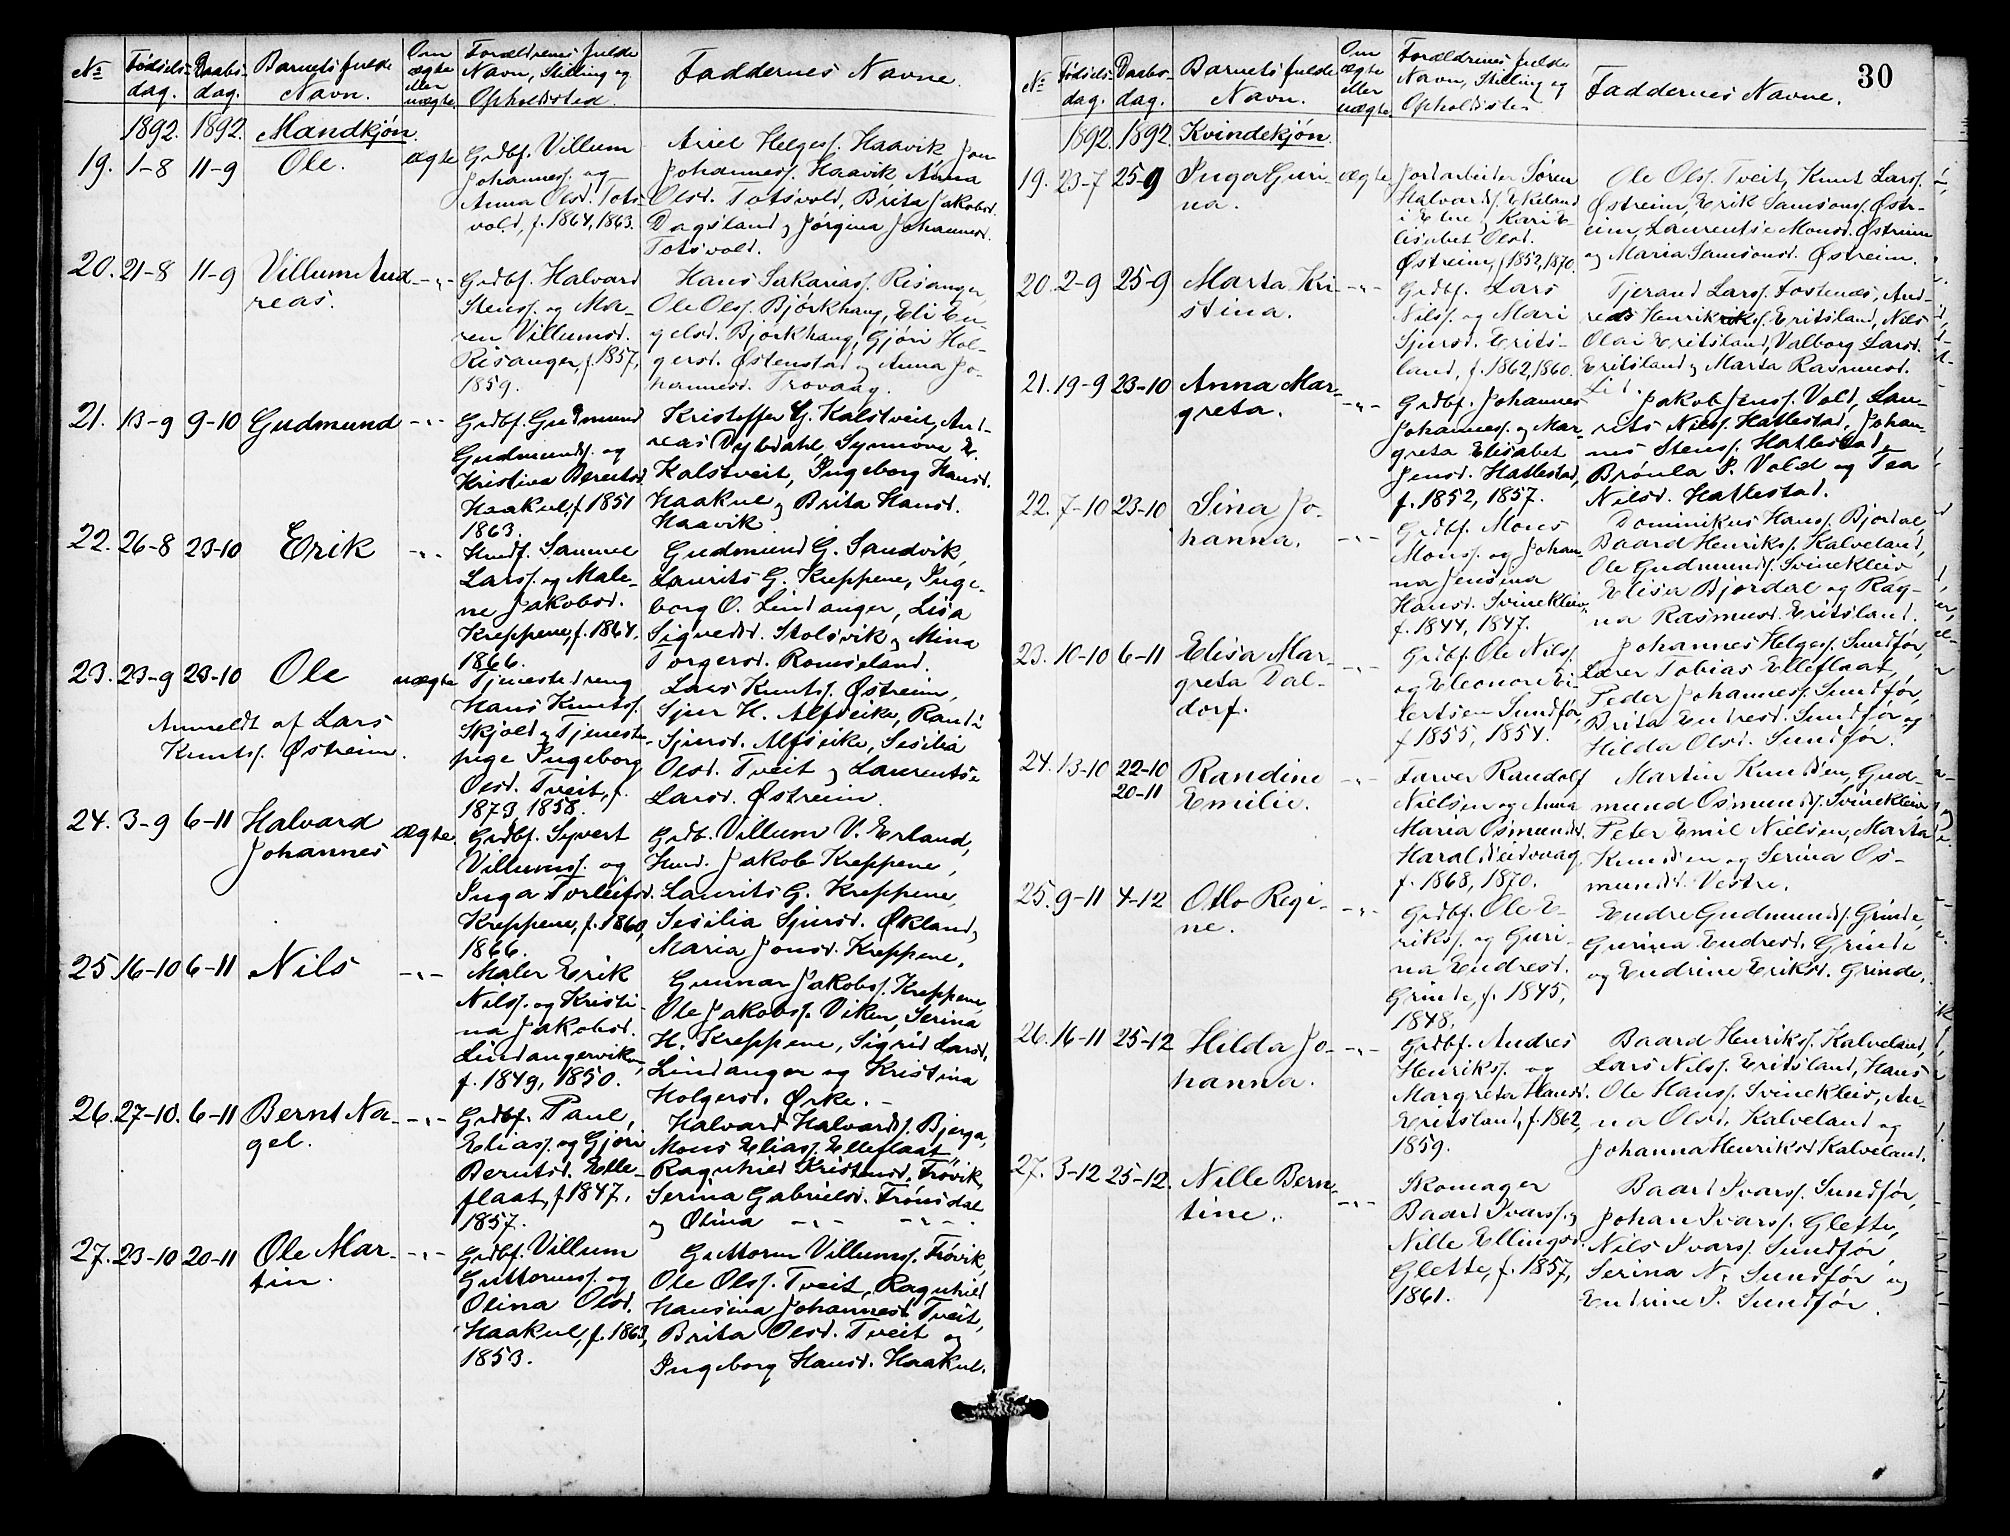 No Fødsels-dag. Daabs-dag. Barnets fulde Navn. Om ægte eller uægte. Forældrenes fulde Navn, Stilling og Opholdssted. Faddernes Navne.
1892. 1892. Mandkjøn.
19. 1-8 11-9 Ole. ægte
Grdbr. Villum
Johanness. og
Anna Olsd. Tots-
vold, f. 1864, 1863.
Ariel Helgess. Haavik, Jon
Johanness. Haavik, Anna
Olsd. Totsvold, Brita Jakobsd.
Dagsland og Jørgina Johannesd.
Totsvold.
20. 21-8 11-9 Villum And
reas.
-"-
Grdbf. Halvard
Stenss. og Ma-
ren Villumsd.
Risanger, f. 1857,
1859.
Hans Sakariass. Risanger,
Ole Olss. Bjørkhaug, Eli En-
gelsd. Bjørkhaug, Gjøri Hol-
gersd. Østenstad og Anna Jo-
hannesd. Trovaag.
21. 13-9 9-10 Gudmund -"-
Grdbf. Gudmund
Gudmunds. og
Kristine Berentsd.
Haakul, f. 1851
1863.
Kristoffer G. Kalstveit, And-
reas Dybdahl, Synnøve E.
Kalstveit, Ingeborg Hansd.
Haakul og Brita Hansd.
Haavik
22. 26-8 23-10 Erik -"-
Husf. Samuel
Larss. og Male-
ne Jakobsd.
Kreppene, f. 1864.
1866.
Gudmund G. Sandvik,
Laurits G. Kreppene, Inge-
borg O. Lindanger, Lisa
Sigvedsd. Stolsvik og Mina
Torgersd. Romseland.
23. 23-9 23-10 Ole uægte
Anmeldt af Lars
Knuts. Østreim.
Tjenestedreng
Hans Knuts.
Skjold og Tjeneste-
pige Ingeborg
Olsd. Tveit, f.
1873, 1858.
Lars Knuts. Østreim,
Sjur H. Alfseike, Randi
Sjursd. Alfseike, Sesilia
Olsd. Tveit og Laurentse
Larsd. Østreim.
24. 3-9 6-11 Halvard
Johannes
ægte.
Grdbf. Syvert
Villumss. og
Inga Torleifsd.
Kreppene, f. 1860,
1866.
Grdb. Villum V. Erland,
Husm. Jakob Kreppene,
Laurits G. Kreppene,
Sesilia Sjursd. Økland og
Maria Jonsd. Kreppene.
25 16-10 6-11 Nils -"-
Maler Erik
Nilss. og Kristi-
na Jakobsd.
Lindangerviken,
f. 1849, 1850.
Gunnar Jakobss. Kreppene,
Ole Jakobss. Viken, Serina
H. Kreppene, Sigrid Larsd.
Lindanger og Kristina
Holgersd. Ørke. -
26. 27-10. 6-11 Bernt Na-
gel.
-"-
Grdbf. Paul,
Eliass. og Gjøri
Berntsd. Elle-
flaat, f 1847,
1857.
Halvard Halvards. Bjerga,
Mons Eliass. Elleflaat
Ragnhild Kristensd. Trøvik,
Serina Gabrielsd. Frønsdal
og Olina -"- -"-.
27. 23-10 20-11 Ole Mar-
tin.
-"-
Grdbf. Villum
Guttormss. og
Olina Olsd.
Haakul, f. 1863,
1853.
Guttorm Villumss. Trøvik,
Ole Olss. Tveit, Ragnhild
Hansina Johannesd. Tveit,
Brita Olsd. Tveit og
Ingeborg Hansd. Haakul.
30
No Fødsels-dag. Daabs-dag. Barnets fulde Navn. Om ægte eller uægte. Forældrenes fulde Navn, Stilling og Opholdssted Faddernes Navne.
1892. 1892. Kvindekjøn.
19. 23-7 25-9 Inga Guri-
na.
ægte
Jordarbeider Søren
Halvards. Ekeland
i Etne, Kari E-
lisabet Olsd.
Østreim, f 1852, 1870.
Ole Olss. Tveit, Knut Larss.
Østreim, Erik Samsons. Østr-
eim, Laurentse Monsd. Østreim
og Maria Samsonsd. Østreim.
20. 2-9 25-9 Marta Kri
stina.
-"-
Grdbf. Lars
Nilss. og Mari
Sjursd. Erits-
land, f. 1862, 1860.
Tjerand Larss. Fostenæs, And-
reas Henriks. Eritsland, Nils
Olai Eritsland, Valborg Larsd.
Eritsland og Marta Rasmusd.
Li.
21. 19-9 23-10 Anna Mar-
greta.
-"-
Grdbf. Johannes
Johanness. og Mar-
greta Elisabet
Jensd. Hatlestad,
f. 1852, 1857.
Jakob Jenss. Vold, Lau-
rets Nilss. Hatlestad, Johan-
nes Stenss. Hatlestad,
Brønla P. Vold og Tea
Nilsd. Hatlestad.
22. 7-10 23-10 Sina Jo-
hanna.
-"-
Grdbf. Mons
Monss. og Johan-
na Jensina
Hansd. Svinekleiv,
f. 1844, 1847.
Dominikus Hanss. Bjordal,
Baard Henriks. Kalveland,
Ole Gudmunds. Svinekleiv
Elisa Bjordal og Rag-
na Rasmusd. Eritsland.
23. 10-10 6-11 Elisa Mar-
greta Dal-
dorf.
-"-
Grdbf. Ole Nilss.
og Eleonore Ei-
lertsen Sundfør,
f 1855, 1854.
Johannes Helgess. Sundfør,
Lærer Tobias Elleflaat,
Peder Johanness. Sundfør,
Brita Endresd. Sundfør og
Hilda Olsd. Sundfør.
24. 13-10 22-10
20-11
Randine
Emilie.
-"-
Farver Randolf
Nielsen og Anna
Maria Osmundsd.
Haraldseidvaag
f. 1868, 1870.
Martin Knudsen, Gud-
mund Osmunds. Svinekleiv,
Peter Emil Nielsen, Marta
Knudsen og Serina Os-
mundsd. Vestre.
25. 9-11 4-12 Otto Regi-
ne.
-"-
Grdbf. Ole E-
rikss. og Guri-
na Endresd.
Grinde, f. 1845,
1848.
Endre Gudmunds. Grinde,
Gurina Endresd. Grinde
og Endrine Eriksd. Grinde.
26. 16-11 25-12 Hilda Jo-
hanna.
-"-
Grdbf. Andres
Henriks. og
Margreta Hansd.
Eritsland, f. 1862,
1859.
Baard Henriks. Kalveland,
Lars Nilss. Eritsland, Hans
Ole Hanss. Svinekleiv, An-
na Olsd. Kalveland og
Johanna Henriksd. Kalveland.
27. 3-12 25-12. Nille Bern-
tine.
-"-
Skomager
Baard Ivarss. og
Nille Ellingsd.
Glette, f. 1857,
1861.
Baard Ivarss. Sundfør,
Johan Ivarss. Glette,
Nils Ivarss. Sundfør,
Serina N. Sundfør og
Endrine P. Sundfør.